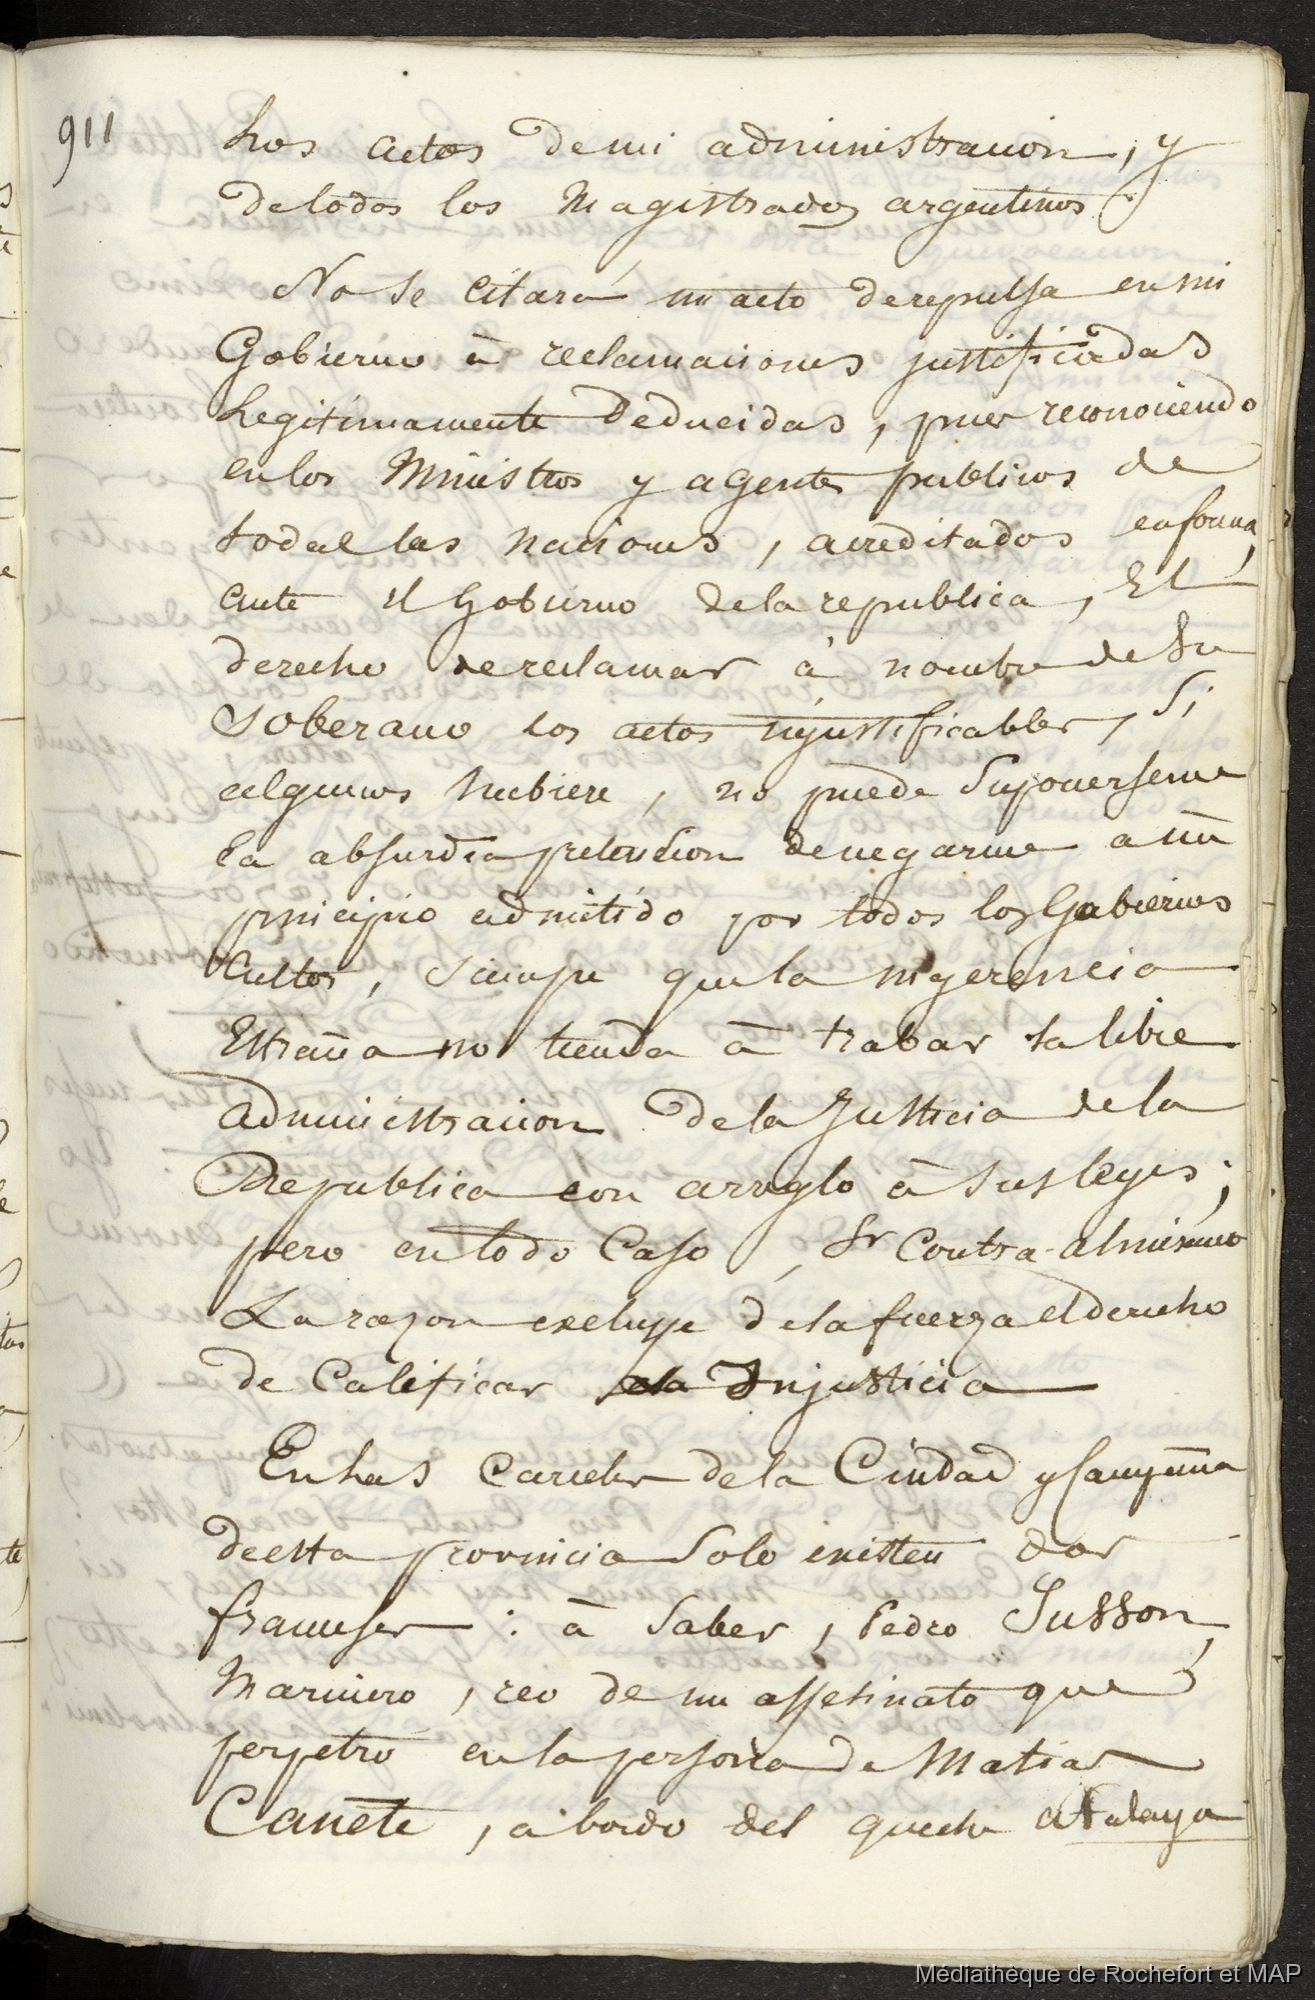 911
Los actos de mi administracion, y
de todos los Magistrados argentinos.
No se citará un acto de repulsa en mi
Gobierno à reclamaciones justificadas
Legitimamente Deducidas, pues reconociendo
en los Ministros y agentes publicos de
todas las naciones, acreditados en forma,
ante el Gobierno de la republica, El
derecho de reclamar à nombre de Su
Soberano los actos injustificables, Si
algunos hubiere, no puede Suponerseme
la absurda pretension de negarme a un
principio admitido por todos los Gobiernos
Cultos, Siempre que la ingerencia
Estraña no tienda à trabar la libre
administracion de la Justicia de la
Republica con arreglo à Sus leyes;
pero en todo Caso, Sr Contra-almirante
La razon excluye de la fuerza el derecho
de Calificar la Injusticia
En las Carceles de la Ciudad y Campaña
de esta provincia Solo existen dos
franceses: à Saber, Pedro Susson,
Marinero, reo de un assesinato que
perpetró en la persona de Matias
Cañete, à bordo del queche Atalaya
Médiathèque de Rochefort et MAP